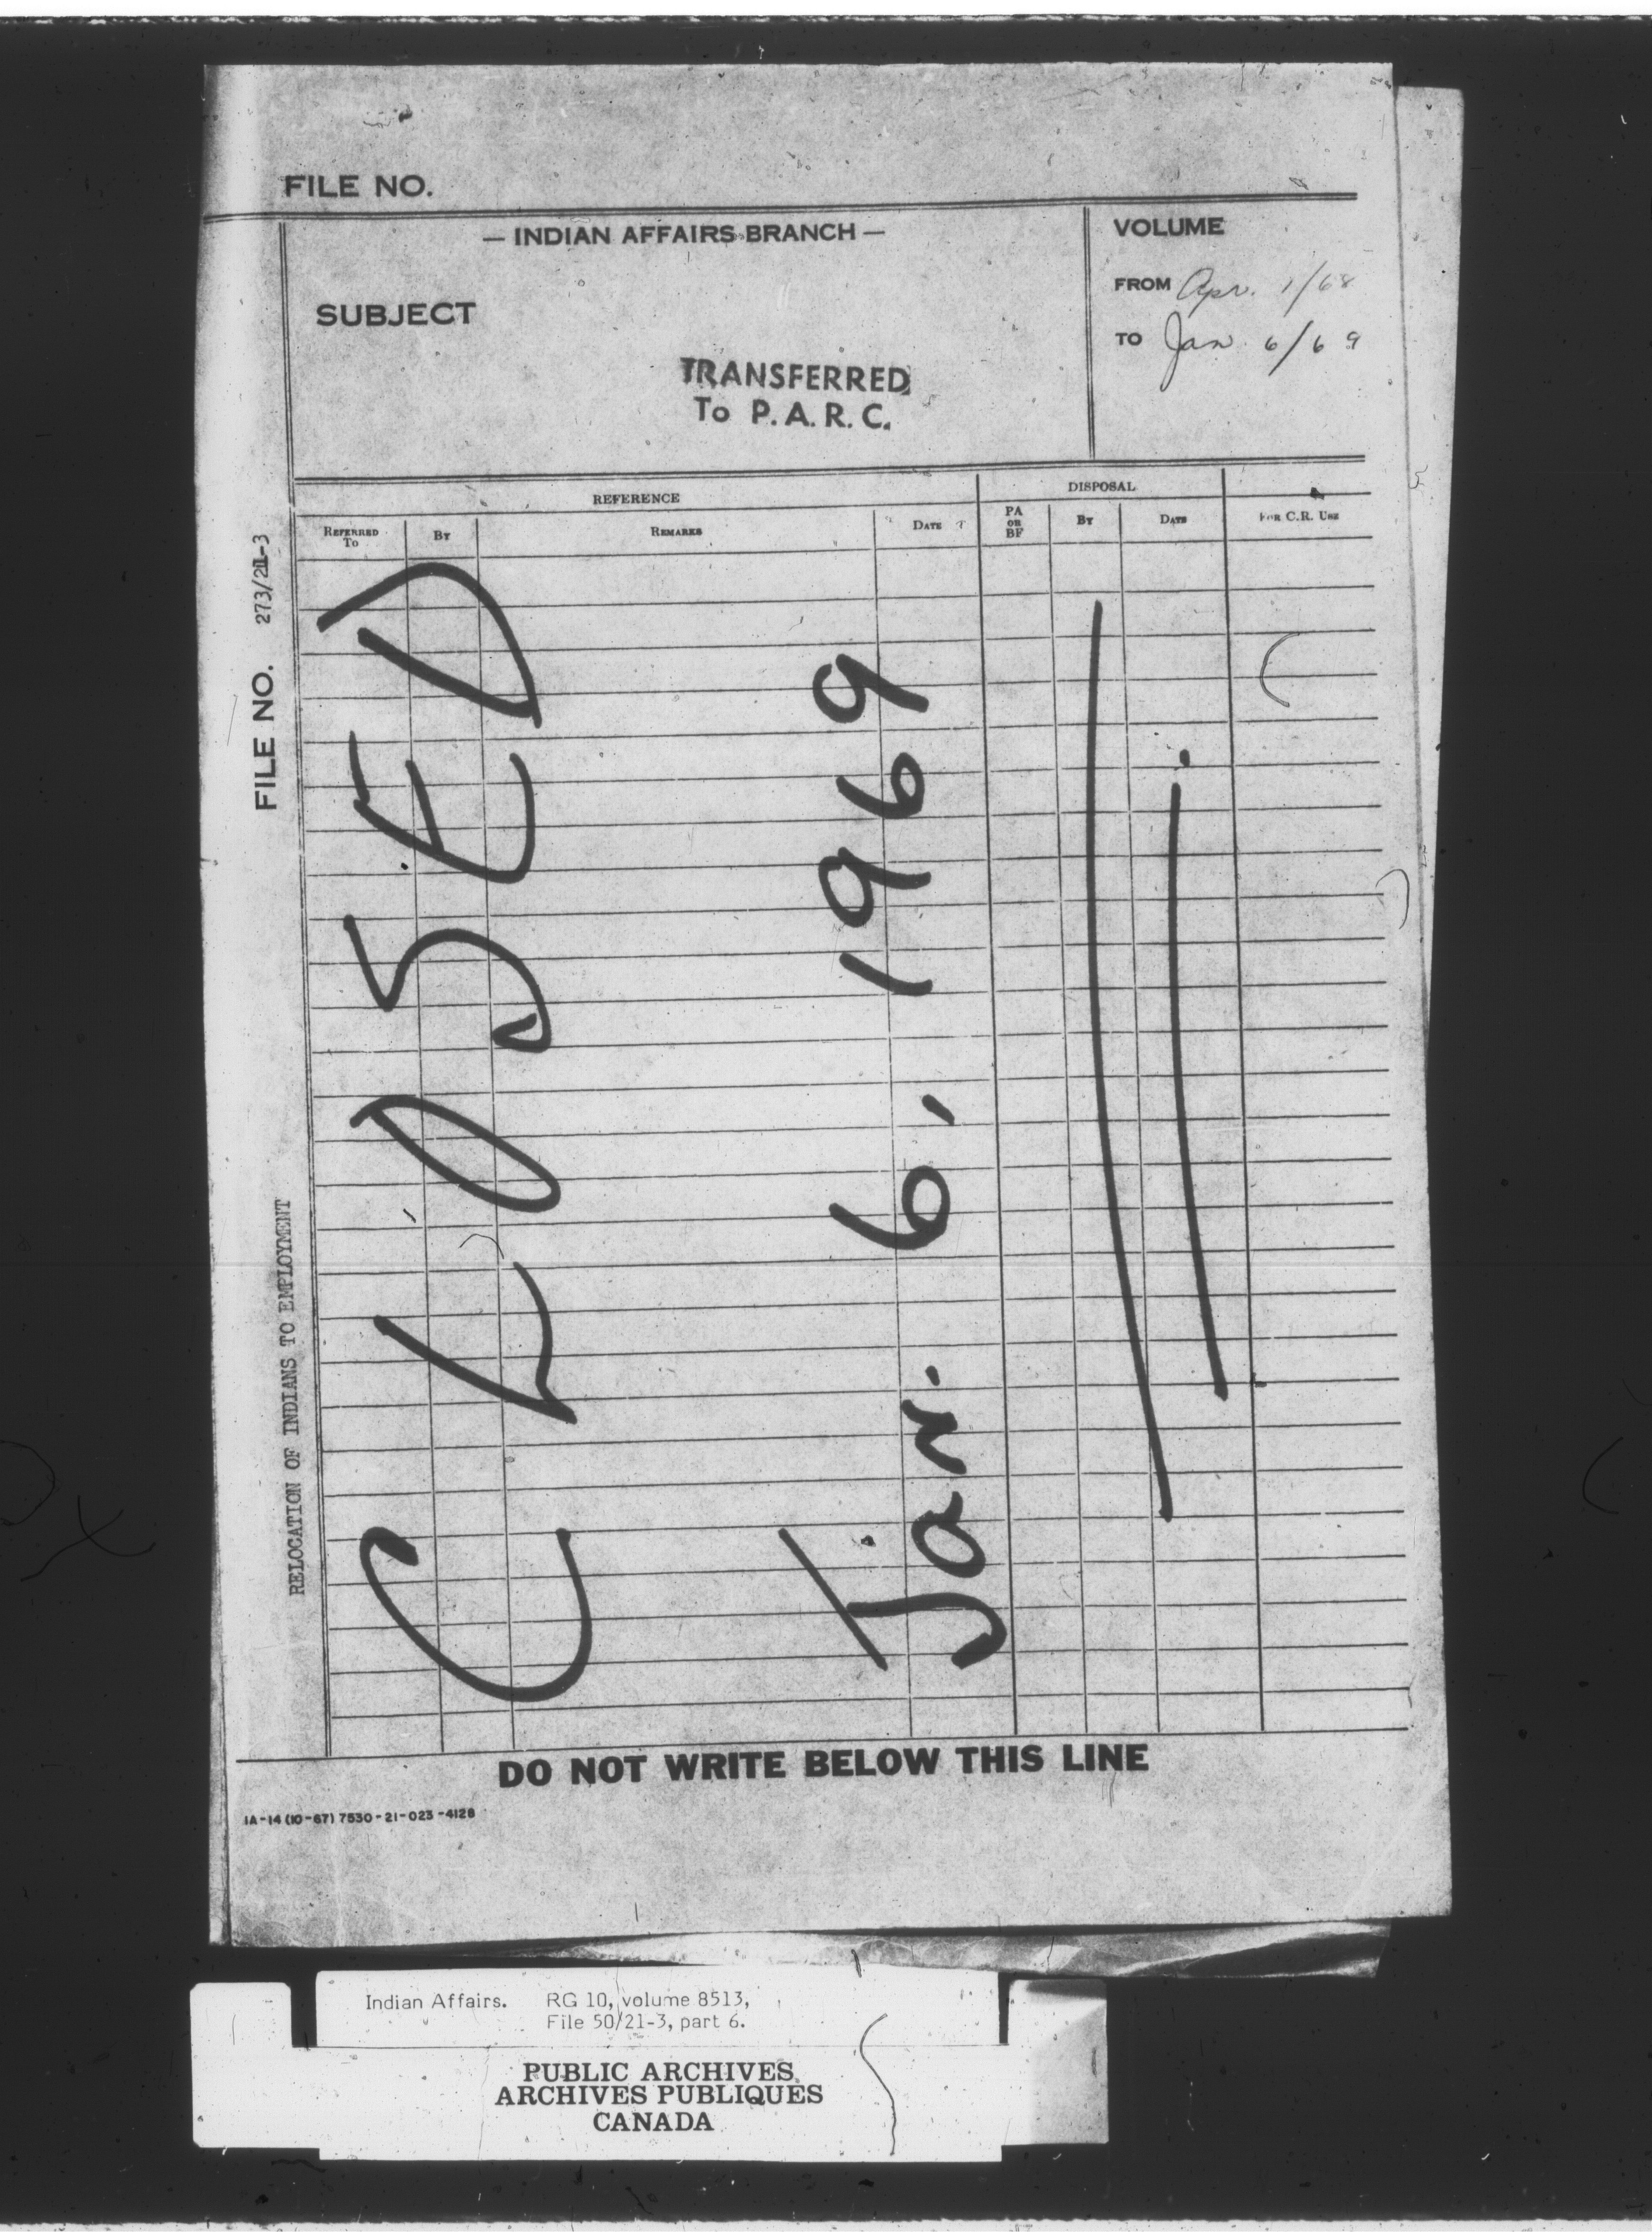 FILE NO.
— INDIAN AFFAIRS BRANCH —
SUBJECT
TRANSFERRED
To P.A.R.C.
VOLUME
FROM Apr. 1/68
TO Jan 6/69
FILE NO. 273/21-3
RELOCATION OF INDIANS TO EMPLOYMENT
REFERENCE
DISPOSAL
REFERRED TO
BY
REMARKS
DATE
PA OR BF
BY
DATE
FOR C.R. USE
CLOSED
Jan. 6, 1969
DO NOT WRITE BELOW THIS LINE
IA-14 (10-67) 7530-21-023-4128
Indian Affairs. RG 10, volume 8513,
File 50/21-3, part 6.
PUBLIC ARCHIVES
ARCHIVES PUBLIQUES
CANADA